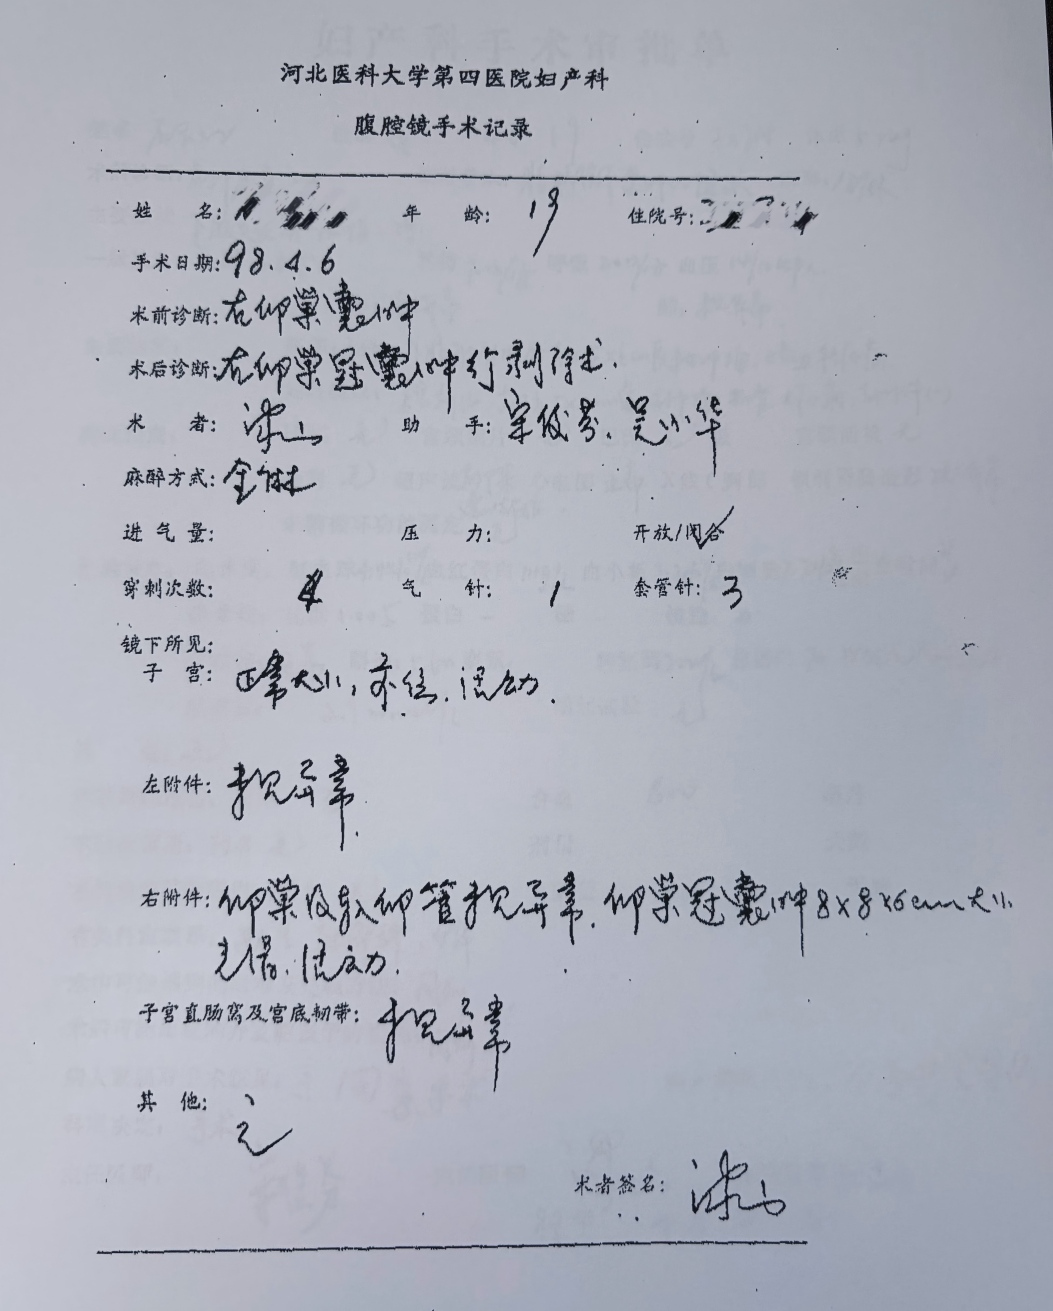 河北医科大学第四医院妇产科
腹腔镜手术记录
姓 名: 年 龄: 19 住院号:
手术日期: 98.4.6
术前诊断: 右卵巢囊肿
术后诊断: 右卵巢冠囊肿行剥除术.
术 者: 助 手: 宋俊芬、吴小华
麻醉方式: 全麻
进 气 量: 压 力: 开放/闭合
穿刺次数: 4 气 针: 1 套管针: 3
镜下所见:
子 宫: 正常大小, 前位. 活动.
左附件: 未见异常.
右附件: 卵巢及输卵管未见异常. 卵巢冠囊肿8×8×6cm大小
光滑. 活动.
子宫直肠窝及宫底韧带: 未见异常
其 他: 无
术者签名: